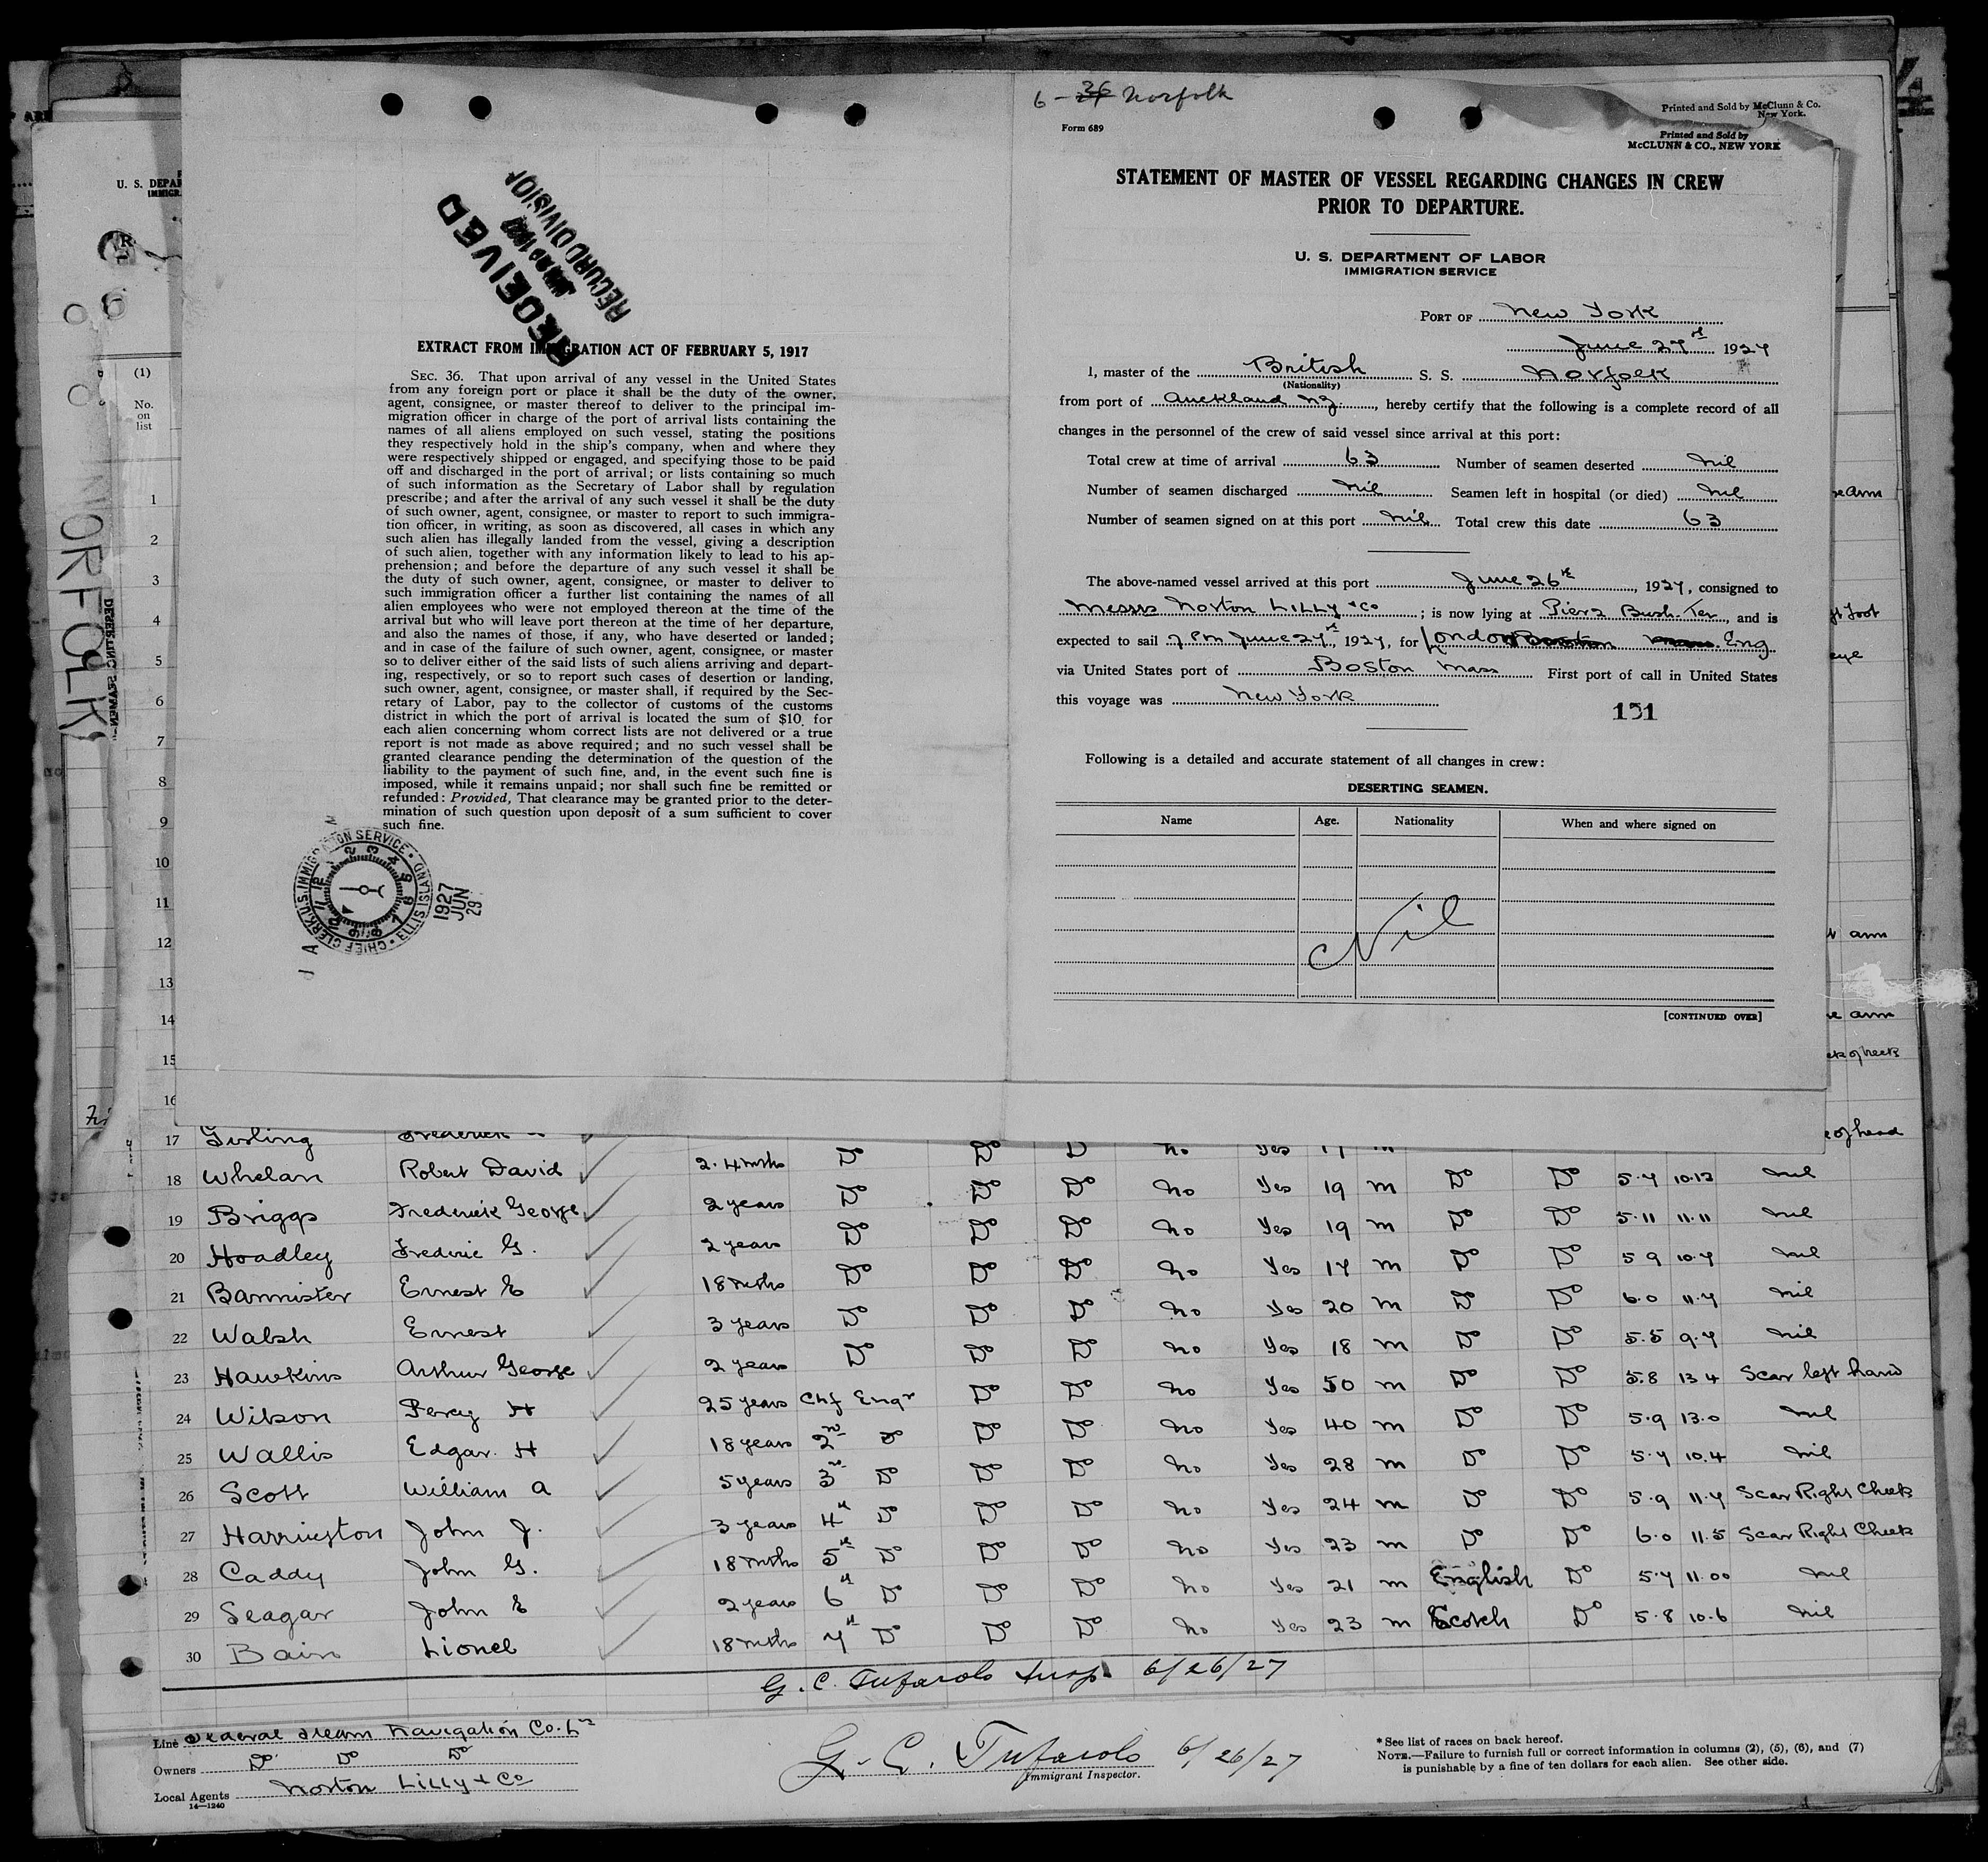 6 - 36 Norfolk
Form 689
Printed and Sold by McClunn & Co.
New York.
Printed and Sold by
McCLUNN & CO., NEW YORK
STATEMENT OF MASTER OF VESSEL REGARDING CHANGES IN CREW
PRIOR TO DEPARTURE.
U. S. DEPARTMENT OF LABOR
IMMIGRATION SERVICE
PORT OF New York
June 27th 1927
I, master of the British S. S. Norfolk
(Nationality)
from port of Auckland NZ, hereby certify that the following is a complete record of all
changes in the personnel of the crew of said vessel since arrival at this port:
Total crew at time of arrival 63 Number of seamen deserted Nil
Number of seamen discharged Nil Seamen left in hospital (or died) Nil
Number of seamen signed on at this port Nil Total crew this date 63
The above-named vessel arrived at this port June 26th, 1927, consigned to
Messrs Norton Lilly & Co; is now lying at Pier 2 Bush Ter, and is
expected to sail 7 PM June 27th, 1927, for London Boston Mass. Eng
via United States port of Boston Mass First port of call in United States
this voyage was New York
151
Following is a detailed and accurate statement of all changes in crew:
DESERTING SEAMEN.
Name Age. Nationality When and where signed on
Nil
[CONTINUED OVER]
RECEIVED
RECORD DIVISION
EXTRACT FROM IMMIGRATION ACT OF FEBRUARY 5, 1917
SEC. 36. That upon arrival of any vessel in the United States
from any foreign port or place it shall be the duty of the owner,
agent, consignee, or master thereof to deliver to the principal im-
migration officer in charge of the port of arrival lists containing the
names of all aliens employed on such vessel, stating the positions
they respectively hold in the ship's company, when and where they
were respectively shipped or engaged, and specifying those to be paid
off and discharged in the port of arrival; or lists containing so much
of such information as the Secretary of Labor shall by regulation
prescribe; and after the arrival of any such vessel it shall be the duty
of such owner, agent, consignee, or master to report to such immigra-
tion officer, in writing, as soon as discovered, all cases in which any
such alien has illegally landed from the vessel, giving a description
of such alien, together with any information likely to lead to his ap-
prehension; and before the departure of any such vessel it shall be
the duty of such owner, agent, consignee, or master to deliver to
such immigration officer a further list containing the names of all
alien employees who were not employed thereon at the time of the
arrival but who will leave port thereon at the time of her departure,
and also the names of those, if any, who have deserted or landed;
and in case of the failure of such owner, agent, consignee, or master
so to deliver either of the said lists of such aliens arriving and depart-
ing, respectively, or so to report such cases of desertion or landing,
such owner, agent, consignee, or master shall, if required by the Sec-
retary of Labor, pay to the collector of customs of the customs
district in which the port of arrival is located the sum of $10 for
each alien concerning whom correct lists are not delivered or a true
report is not made as above required; and no such vessel shall be
granted clearance pending the determination of the question of the
liability to the payment of such fine, and, in the event such fine is
imposed, while it remains unpaid; nor shall such fine be remitted or
refunded: Provided, That clearance may be granted prior to the deter-
mination of such question upon deposit of a sum sufficient to cover
such fine.
CHIEF CLERK U.S. IMMIGRATION SERVICE • ELLIS ISLAND
1927
JUN
29
NORFOLK
DESERTING SEAMEN
U. S. DEPAR
IMMIGR
(1)
No.
on
list
1
2
3
4
5
6
7
8
9
10
11
12
13
14
15
16
17 Girling Frederick
18 Whelan Robert David 2.4 mths Do Do Do No Yes 19 m Do Do 5.7 10.12 Nil
19 Briggs Frederick George 2 years Do Do Do No Yes 19 m Do Do 5.11 11.11 Nil
20 Hoadley Frederic G. 2 years Do Do Do No Yes 17 m Do Do 5 9 10.7 Nil
21 Bannister Ernest E 18 mths Do Do Do No Yes 20 m Do Do 6.0 11.7 Nil
22 Walsh Ernest 3 years Do Do Do No Yes 18 m Do Do 5.5 9.7 Nil
23 Hawkins Arthur George 2 years Do Do Do No Yes 50 m Do Do 5.8 13 4 Scar left hand
24 Wilson Percy H 25 years Chf Engr Do Do No Yes 40 m Do Do 5.9 13.0 Nil
25 Wallis Edgar. H 18 years 2nd Do Do Do No Yes 28 m Do Do 5.7 10.4 Nil
26 Scott William A 5 years 3rd Do Do Do No Yes 24 m Do Do 5.9 11.7 Scar Right Cheek
27 Harrington John J. 3 years 4th Do Do Do No Yes 23 m Do Do 6.0 11.5 Scar Right Cheek
28 Caddy John G. 18 mths 5th Do Do Do No Yes 21 m English Do 5.7 11.00 Nil
29 Seagar John E 2 years 6th Do Do Do No Yes 23 m Scotch Do 5.8 10.6 Nil
30 Bain Lionel 18 mths 7th Do Do Do
G. C. Tufarolo Insp 6/26/27
Line Federal Steam Navigation Co. Ltd
Owners Do Do Do
Local Agents Norton Lilly & Co
14—1240
G. C. Tufarolo 6/26/27
Immigrant Inspector.
* See list of races on back hereof.
NOTE.—Failure to furnish full or correct information in columns (2), (5), (6), and (7)
is punishable by a fine of ten dollars for each alien. See other side.